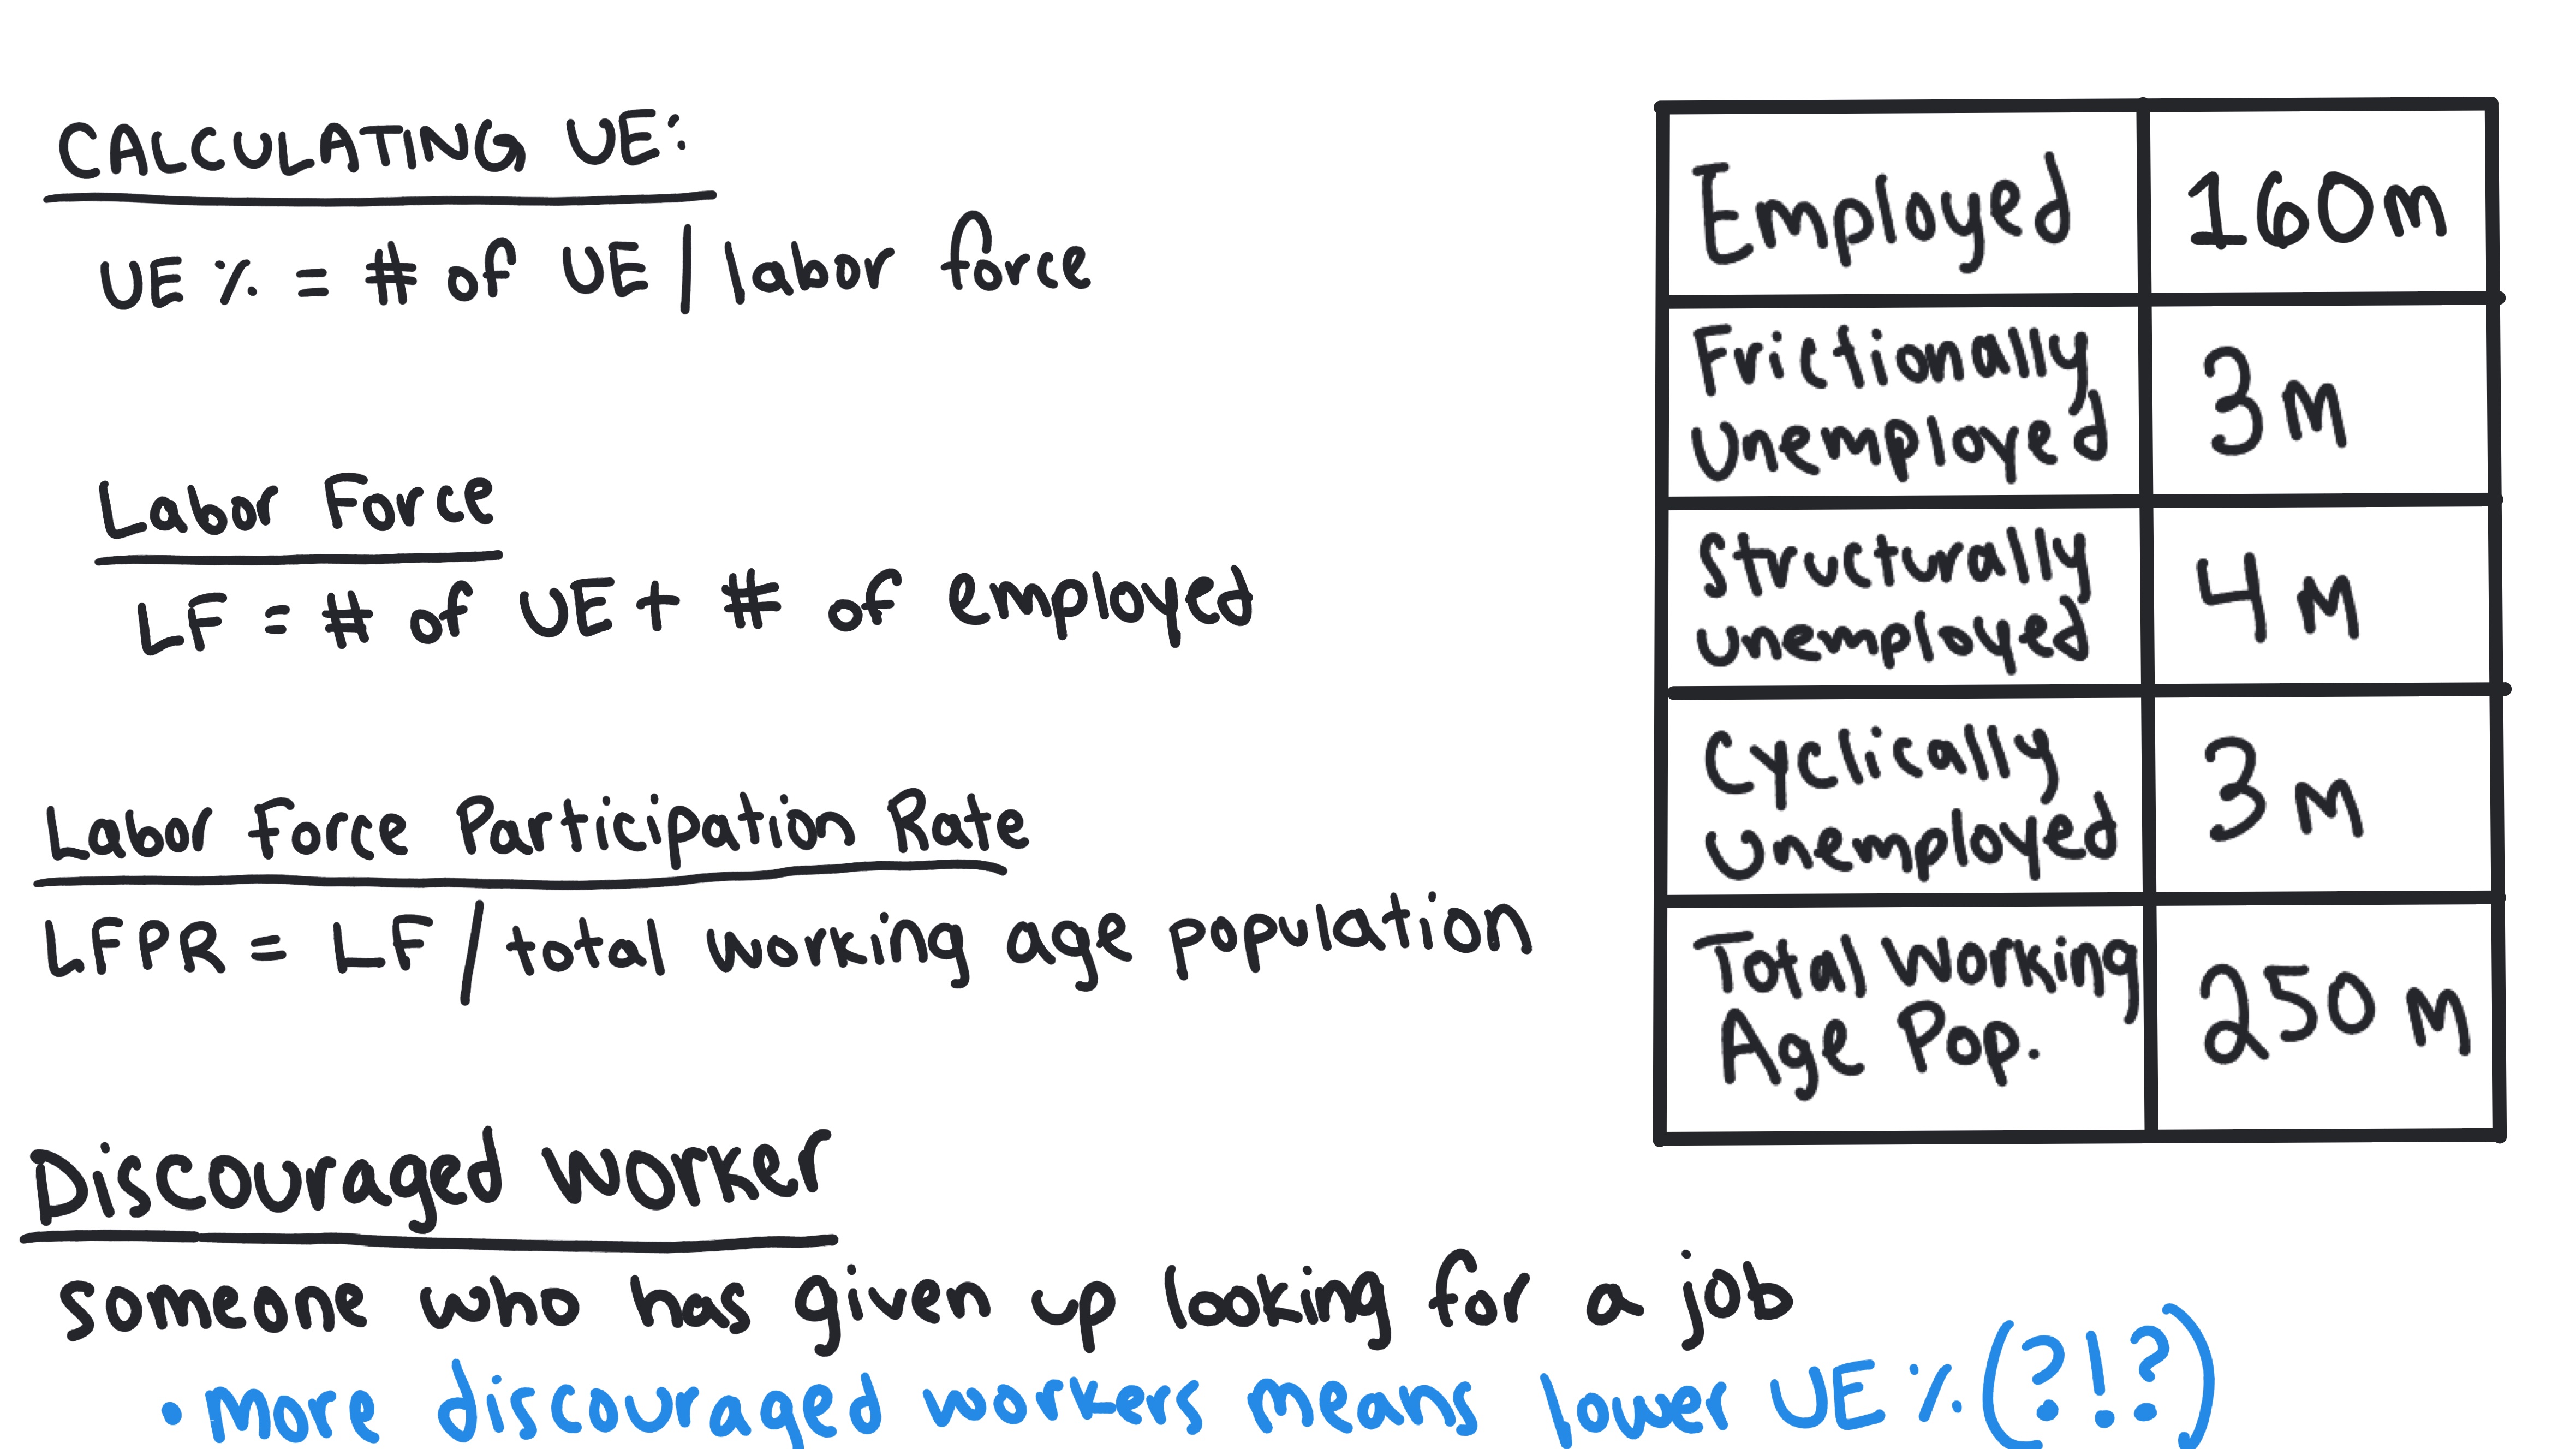 CALCULATING UE:
UE % = # of UE / labor force
Labor Force
LF = # of UE + # of employed
Labor Force Participation Rate
LFPR = LF / total working age population
Discouraged Worker
someone who has given up looking for a job
• more discouraged workers means lower UE % (?!?)
Employed 160m
Frictionally
Unemployed 3m
Structurally
unemployed 4m
Cyclically
Unemployed 3m
Total Working
Age Pop. 250m